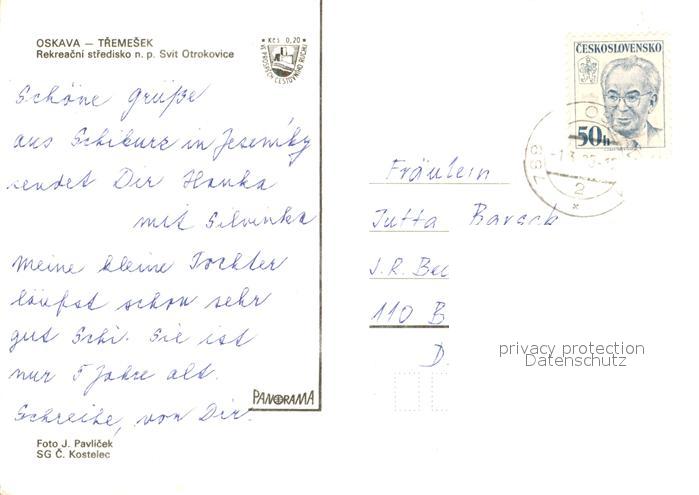 OSKAVA — TŘEMEŠEK
Rekreační středisko n. p. Svit Otrokovice
Kčs 0,20
VE PROSPĚCH CESTOVNÍHO RUCHU
Schöne grüße
aus Schikurz in Jeseníky
sendet Dir Hanka
mit Silvinka
Meine kleine Tochter
läufst schon sehr
gut Schi. Sie ist
nur 5 Jahre alt.
Schreibe, von Dir.
PANORAMA
Foto J. Pavlíček
SG Č. Kostelec
ČESKOSLOVENSKO
50h
788
2
Fräulein
Jutta Barsch
J.R. Bec
110 B
D.
privacy protection
Datenschutz